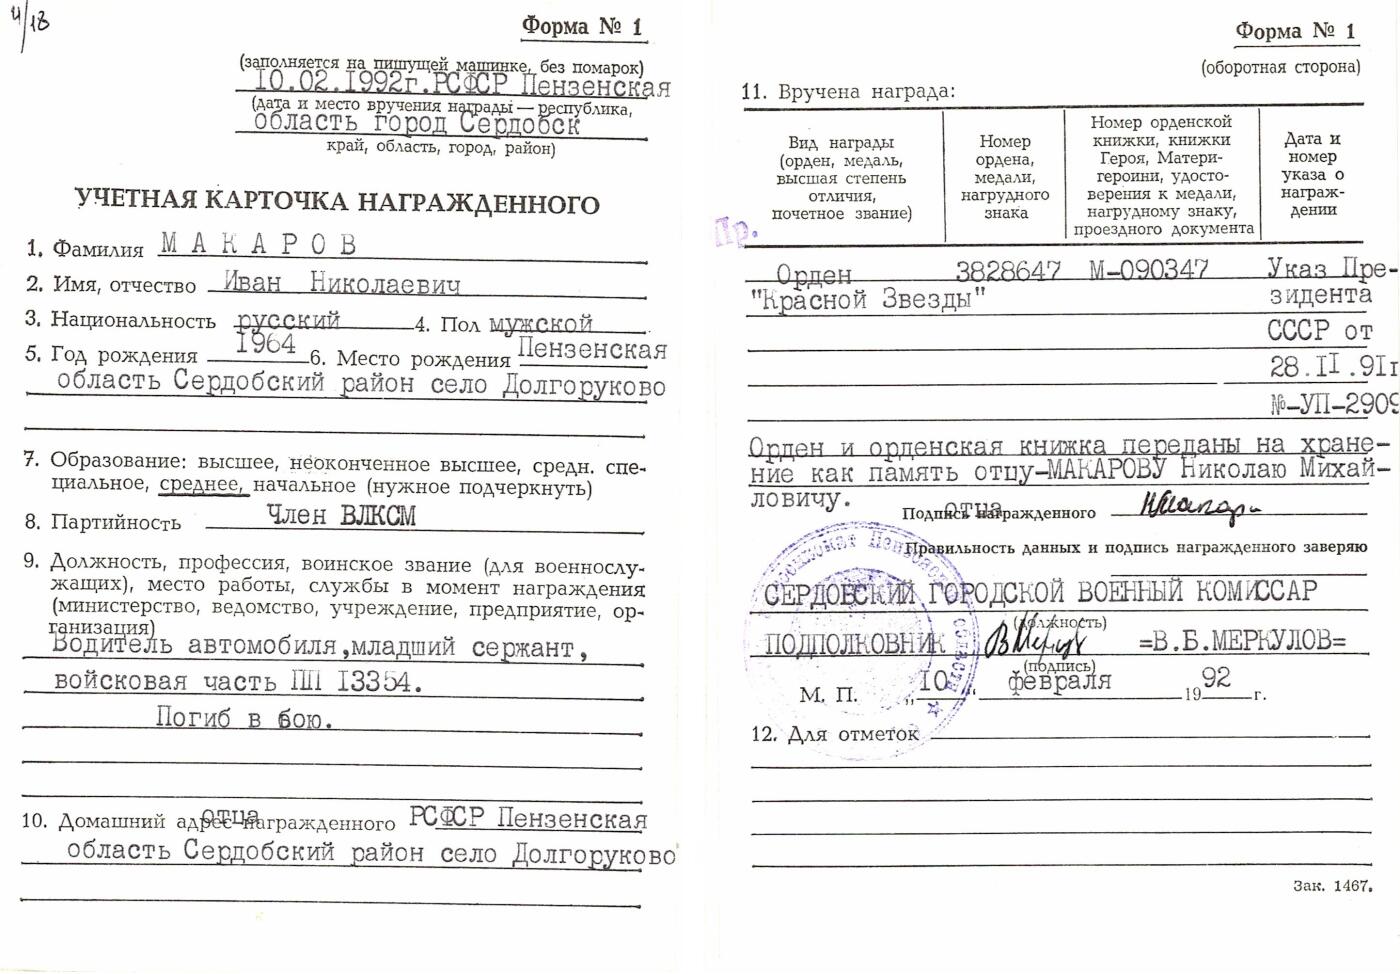 и/18
Форма № 1
(заполняется на пишущей машинке, без помарок)
10.02.1992г.РСФСР Пензенская
(дата и место вручения награды — республика,
область город Сердобск
край, область, город, район)
УЧЕТНАЯ КАРТОЧКА НАГРАЖДЕННОГО
1. Фамилия М А К А Р О В
2. Имя, отчество Иван Николаевич
3. Национальность русский 4. Пол мужской
5. Год рождения 1964 6. Место рождения Пензенская
область Сердобский район село Долгоруково
7. Образование: высшее, неоконченное высшее, средн. спе-
циальное, среднее, начальное (нужное подчеркнуть)
8. Партийность Член ВЛКСМ
9. Должность, профессия, воинское звание (для военнослу-
жащих), место работы, службы в момент награждения
(министерство, ведомство, учреждение, предприятие, ор-
ганизация)
Водитель автомобиля,младший сержант,
войсковая часть ПП 13354.
Погиб в бою.
отца
10. Домашний адрес награжденного РСФСР Пензенская
область Сердобский район село Долгоруково
Форма № 1
(оборотная сторона)
11. Вручена награда:
Вид награды
(орден, медаль,
высшая степень
отличия,
почетное звание)
Номер
ордена,
медали,
нагрудного
знака
Номер орденской
книжки, книжки
Героя, Матери-
героини, удосто-
верения к медали,
нагрудному знаку,
проездного документа
Дата и
номер
указа о
награж-
дении
Пр.
Орден 3828647 М-090347 Указ Пре-
"Красной Звезды" зидента
СССР от
28.II.91г
№-УП-2909
Орден и орденская книжка переданы на хране-
ние как память отцу-МАКАРОВУ Николаю Михай-
ловичу.
отца
Подпись награжденного
Правильность данных и подпись награжденного заверяю
СЕРДОБСКИЙ ГОРОДСКОЙ ВОЕННЫЙ КОМИССАР
(должность)
ПОДПОЛКОВНИК =В.Б.МЕРКУЛОВ=
(подпись)
М. П. „10“ февраля 1992 г.
12. Для отметок
Зак. 1467.